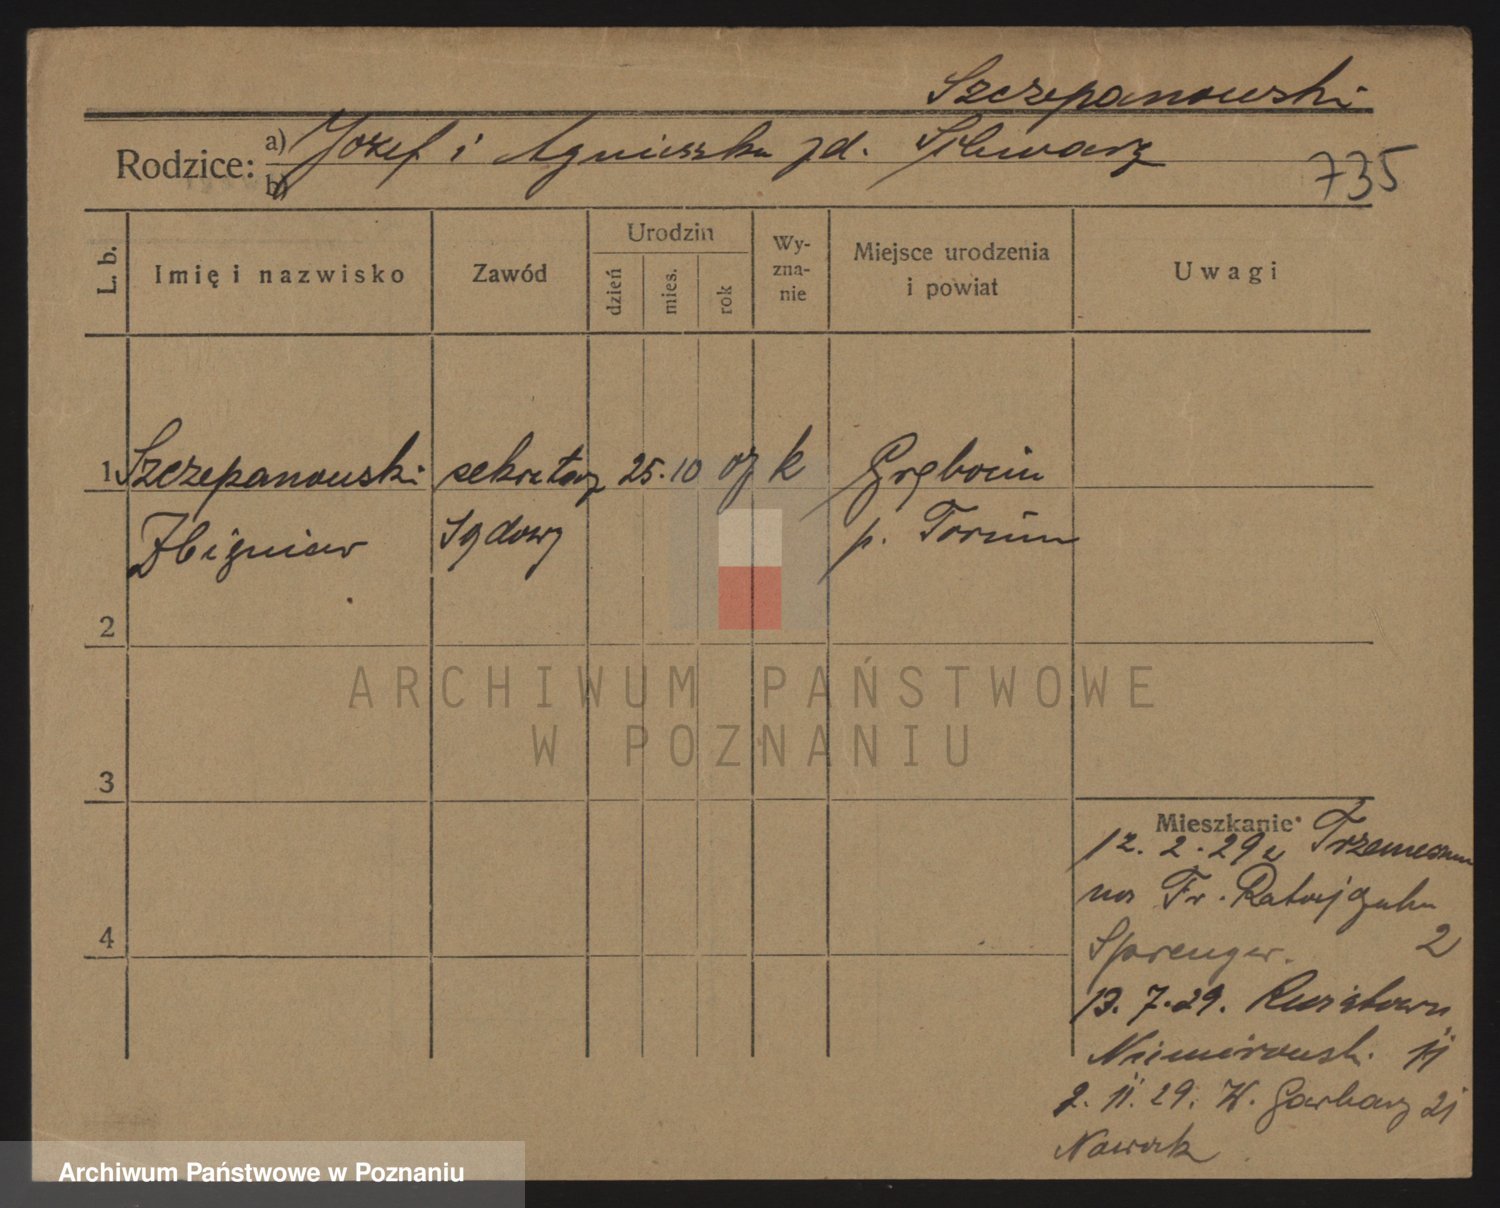 Szczepanowski
Rodzice: a) Józef i Agnieszka zd. Szlwarz
b)
735
L. b.
Imię i nazwisko
Zawód
Urodzin
dzień
mies.
rok
Wy-
zna-
nie
Miejsce urodzenia
i powiat
Uwagi
1 Szczepanowski sekretarz 25. 10 07 k Grębocin
Zbigniew sądowy p. Toruń
2
3
4
Mieszkanie
12. 2. 29 z Trzemeszna
na Fr. Ratajczaka
Sprenger. 2
13. 7. 29.
Niemirowsk. 11
2. 11. 29. W. Garbary 21
Nowak
ARCHIWUM PAŃSTWOWE
W POZNANIU
Archiwum Państwowe w Poznaniu